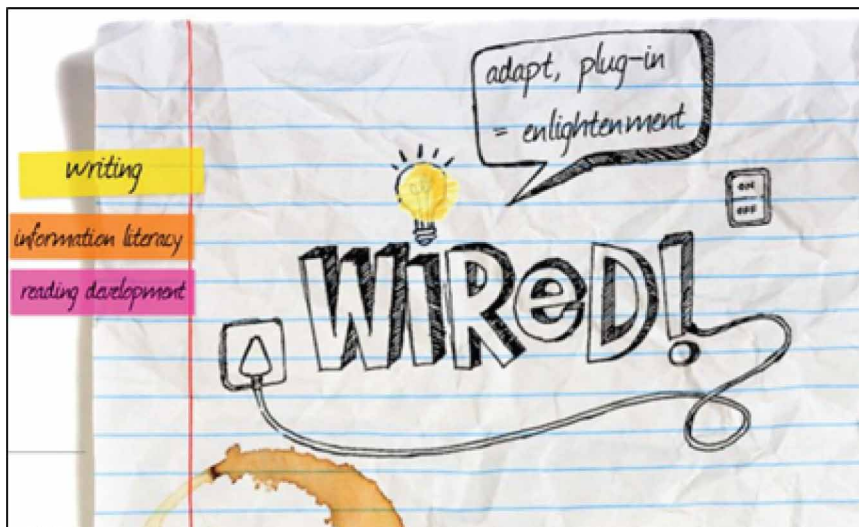 adapt, plug-in
= enlightenment
writing
information literacy
reading development
ON
OFF
WIReD!